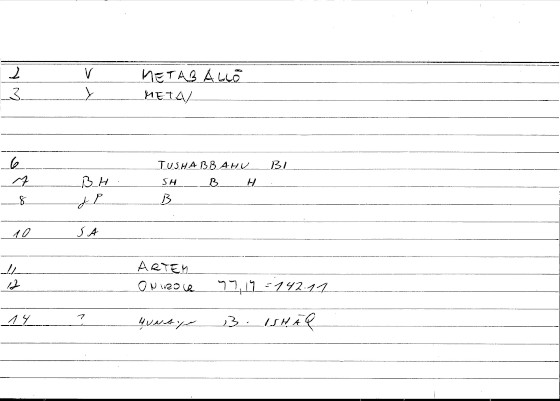 1 V METABALLŌ
3 META/
6 TUSHABBAHU BI
7 BH SH B H
8 P B
10 SA
11 ARTEM
12 ONIROCR 77,17 = 142.11
14 ? HUNAYN B. ISHĀQ